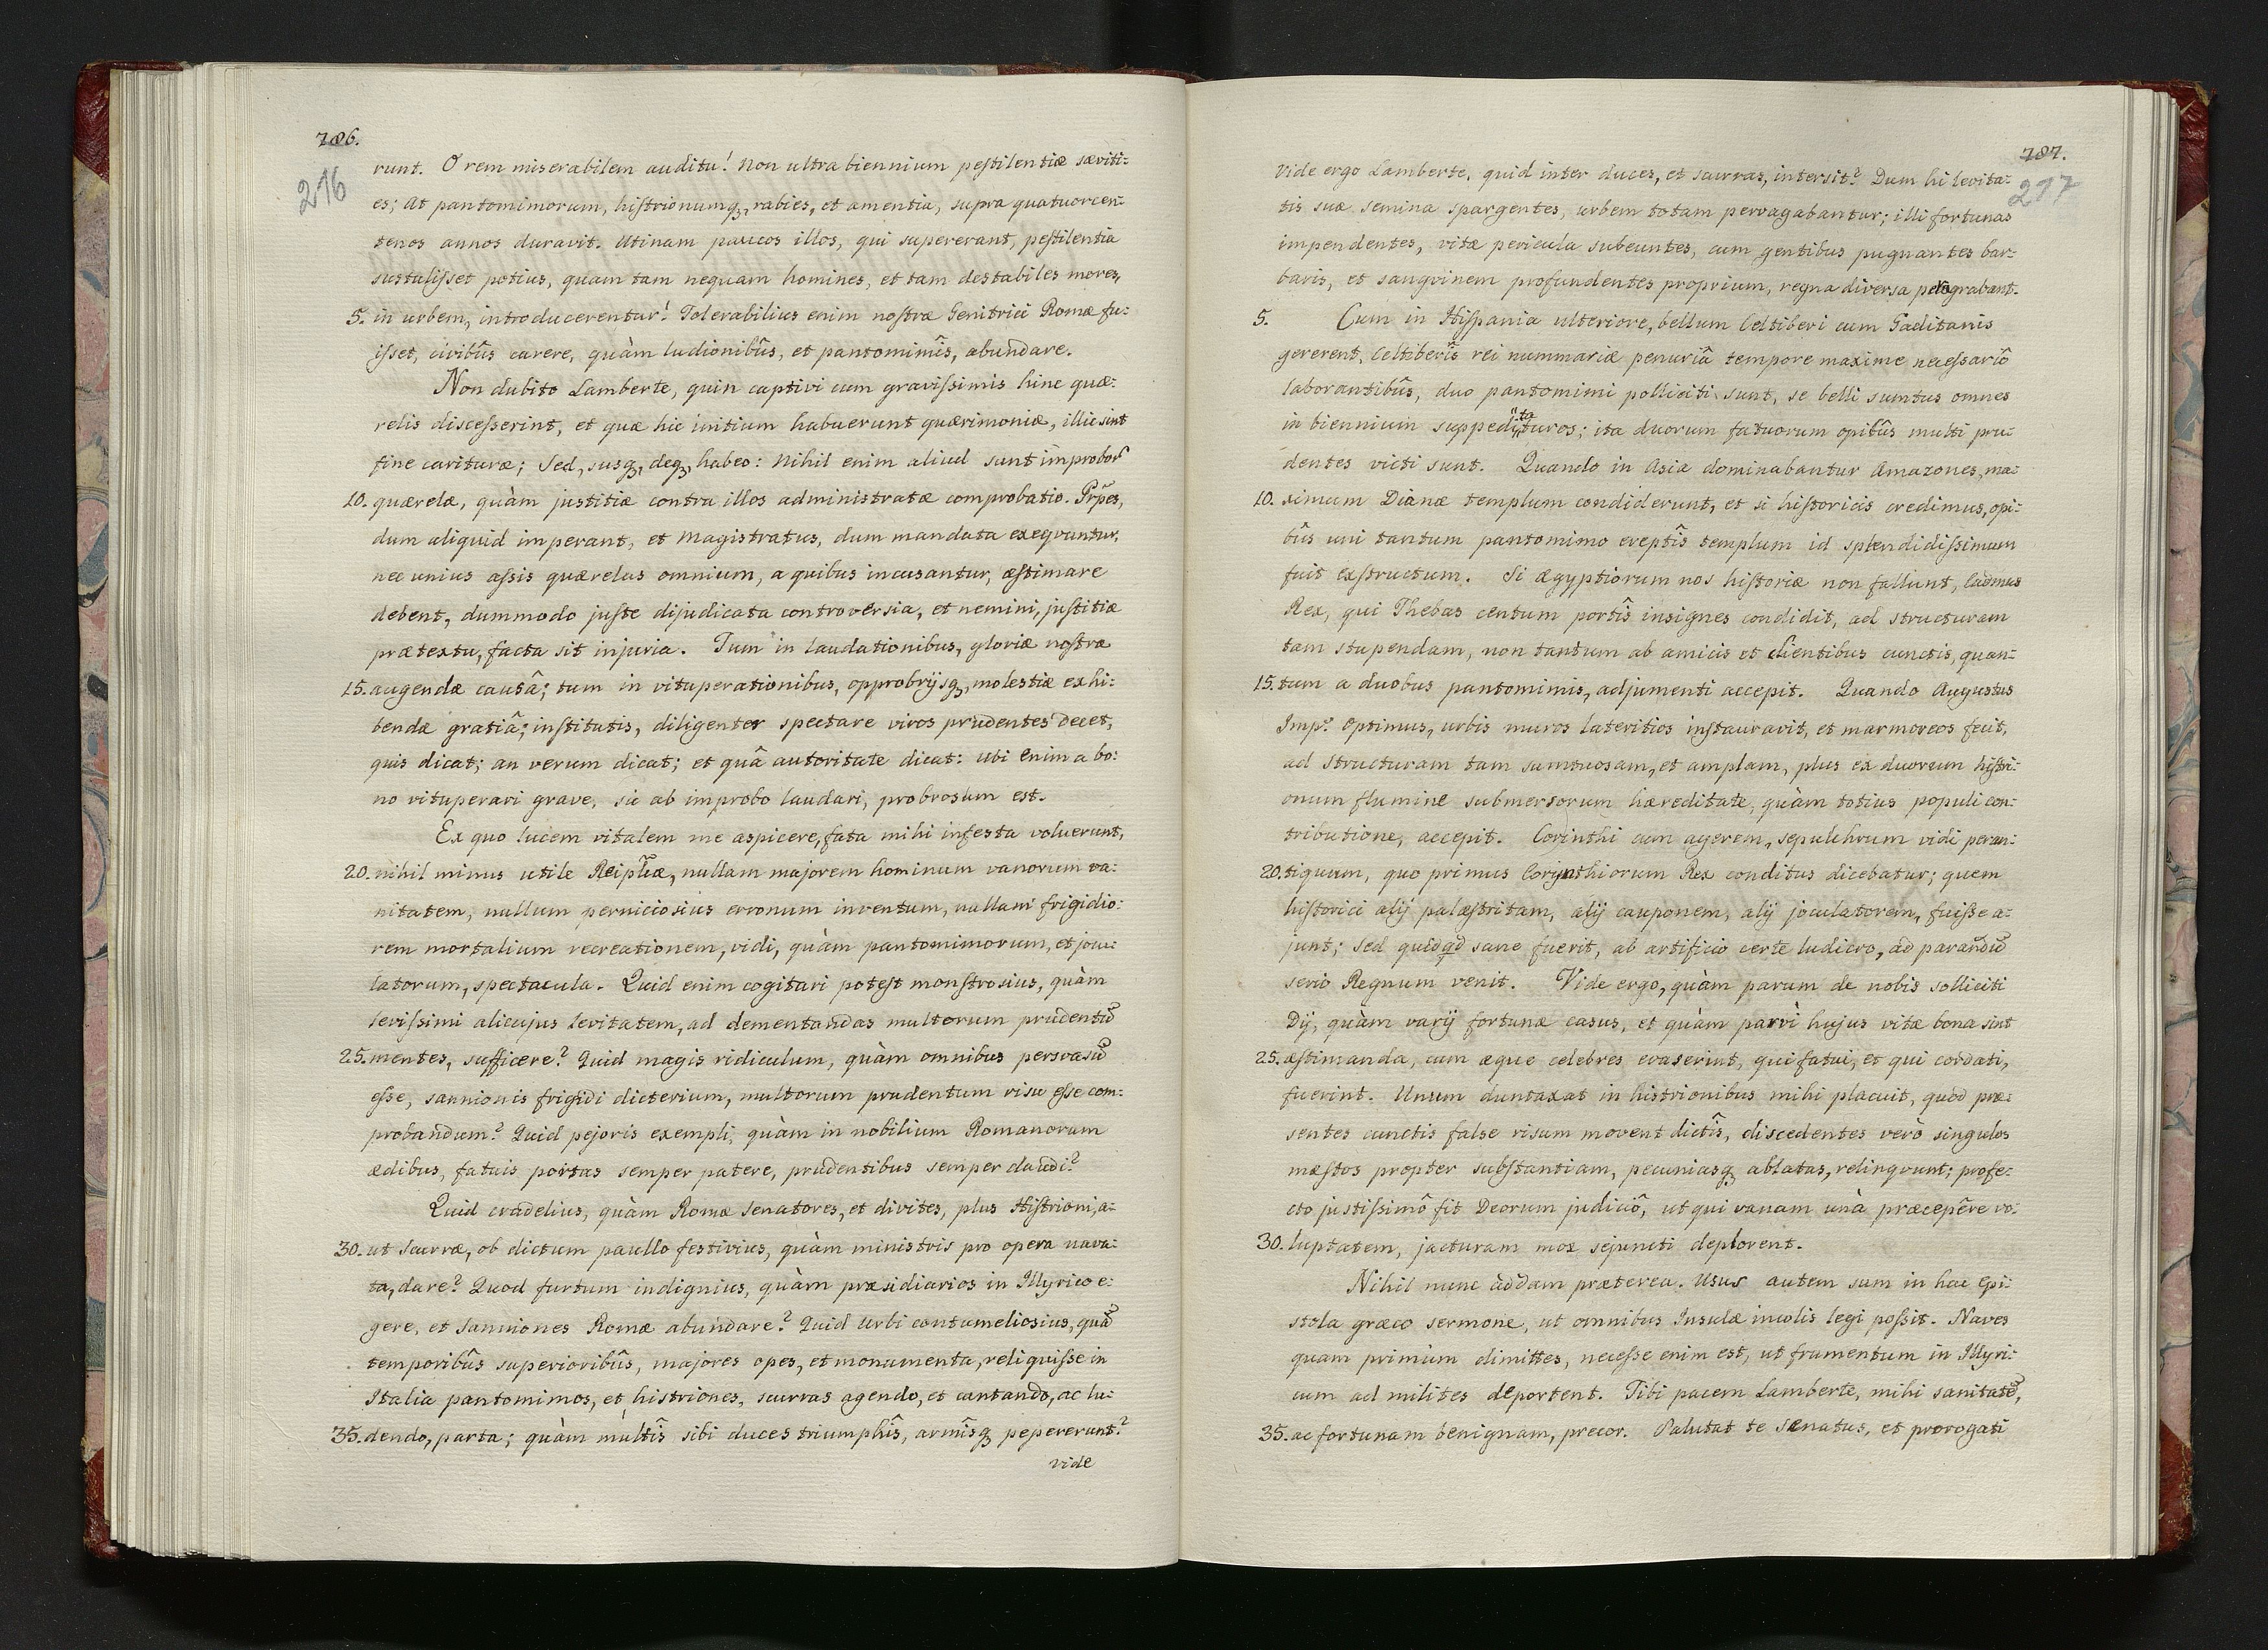 786.
216
runt. O rem miserabilem auditu! Non ultra biennium pestilentiæ sæviti:
es; At pantomimorum, histrionumq3, rabies, et amentia, supra quatuorcen:
tenos annos duravit. Utinam paucos illos, qui supererant, pestilentia
sustulisset potius, quam tam nequam homines, et tam destabiles mores,
5. in urbem, introducerentur! Tolerabilius enim nostræ Genitrici Romæ fu:
isset, civibûs carere, quàm ludionibûs, et pantomimîs, abundare.
Non dubito Lamberte, quin captivi cum gravissimis hinc quæ:
relis discesserint, et quæ hic initium habuerunt quærimoniæ, illic sint
fine carituræ; Sed, susq3, deq3, habeo: Nihil enim aliud sunt improbor
10. quærelæ, quàm justitiæ contra illos administratæ comprobatio. Prp̃es,
dum aliquid imperant, et Magistratus, dum mandata exeqvuntur,
nec unius assis quærelas omnium, a quibus incusantur, æstimare
debent, dummodo juste dijudicata controversia, et nemini, justitiæ
prætextu, facta sit injuria. Tum in laudationibus, gloriæ nostræ
15. augendæ causâ; tum in vituperationibus, opprobrijsq3, molestiæ exhi:
bendæ gratiâ; institutis, diligenter spectare viros prudentes decet,
quis dicat; an verum dicat; et quâ autoritate dicat: ubi enim a bo:
no vituperari grave, sic ab improbo laudari, probrosum est.
Ex quo lucem vitalem me aspicere, fata mihi infesta voluerunt,
20. nihil minus utile Reipl̃iæ, nullam majorem hominum vanorum va:
nitatem, nullum perniciosius erronum inventum, nullam frigidio:
rem mortalium recreationem, vidi, quàm pantomimorum, et jocu:
latorum, spectacula. Quid enim cogitari potest monstrosius, quàm
levissimi alicujus levitatem, ad dementandas multorum prudentũ
25. mentes, sufficere? Quid magis ridiculum, quàm omnibus persvasũ
esse, sannionis frigidi dicterium, multorum prudentum risu esse com:
probandum? Quid pejoris exempli, quàm in nobilium Romanorum
ædibus, fatuis portas semper patere, prudentibus semper claudi?
Quid crudelius, quàm Romæ Senatores, et divites, plus Histrioni, a:
30. ut Scurræ, ob dictum paullo festivius, quàm ministris pro opera nava:
ta, dare? Quod furtum indignius, quàm præsidiarios in Illyrico e:
gere, et Sanniones Romæ abundare? Quid Urbi contumeliosius, quã
temporibûs superioribûs, majores opes, et monumenta, reliquisse in
Italia pantomimos, et histriones, scurras agendo, et cantando, ac lu:
35. dendo, parta; quàm multîs sibi duces triumphîs, armîsq3 pepererunt?
vide
787.
217
Vide ergo Lamberte, quid inter duces, et scurras, intersit? Dum hi levita:
tis suæ semina spargentes, urbem totam pervagabantur; illi fortunas
impendentes, vitæ pericula subeuntes, cum gentibus pugnantes bar:
baris, et sangvinem profundentes proprium, regna diversa peragrabant.
5. Cum in Hispania ulteriore, bellum Celtiberi cum Gaditanis
gererent, Celtiberîs rei nummariæ penuriâ tempore maxime necessariô
laborantibûs, duo pantomimi polliciti sunt, se belli sumtus omnes
in biennium suppedi"ta"turos; ita duorum fatuorum opibûs multi pru:
dentes victi sunt. Quando in Asia dominabantur Amazones, ma:
10. ximum Dianæ templum condiderunt, et si historicis credimus, opi:
bûs uni tantum pantomimo ereptîs templum id splendidissimum
fuit exstructum. Si Ægyptiorum nos historiæ non fallunt, Cadmus
Rex, qui Thebas centum portîs insignes condidit, ad structuram
tam stupendam, non tantum ab amicis et clientibus cunctis, quan:
15. tum a duobus pantomimis, adjumenti accepit. Quando Augustus
Imp: Optimus, urbis muros lateritios instauravit, et marmoreos fecit,
ad structuram tam sumtuosam, et amplam, plus ex duorum histri:
onum flumine submersorum hæreditate, quàm totius populi con:
tributione, accepit. Corinthi cum agerem, sepulchrum vidi peran:
20. tiquum, quo primus Corynthiorum Rex conditus dicebatur; quem
historici alij palæstritam, alij cauponem, alij joculatorem, fuisse a:
junt; Sed quidqd sane fuerit, ab artificio certe ludicro, ad parandũ
serio Regnum venit. Vide ergo, quàm parum de nobis solliciti
Dij, quàm varij fortunæ casus, et quàm parvi hujus vitæ bona sint
25. æstimanda, cum æque celebres evaserint, qui fatui, et qui cordati,
fuerint. Unum duntaxat in histrionibus mihi placuit, quod præ:
sentes cunctis false risum movent dictîs, discedentes verò singulos
mæstos propter substantiam, pecuniasq3 ablatas, relinqvunt; profe:
cto justissimô fit Deorum judiciô, ut qui vanam unà præcepêre vo:
30. luptatem, jacturam mox sejuncti deplorent.
Nihil nunc addam præterea. Usus autem sum in hac Epi:
stola græco sermone, ut omnibus Insulæ incolis legi possit. Naves
quam primùm dimittes, necesse enim est, ut frumentum in Illyri:
cum ad milites deportent. Tibi pacem Lamberte, mihi sanitatẽ,
35. ac fortunam benignam, precor. Salutat te Senatus, et prorogati